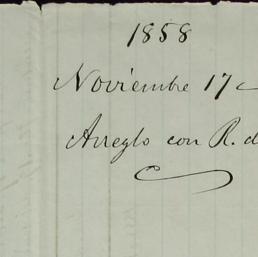 1858
Noviembre 17
Arreglo con R. d